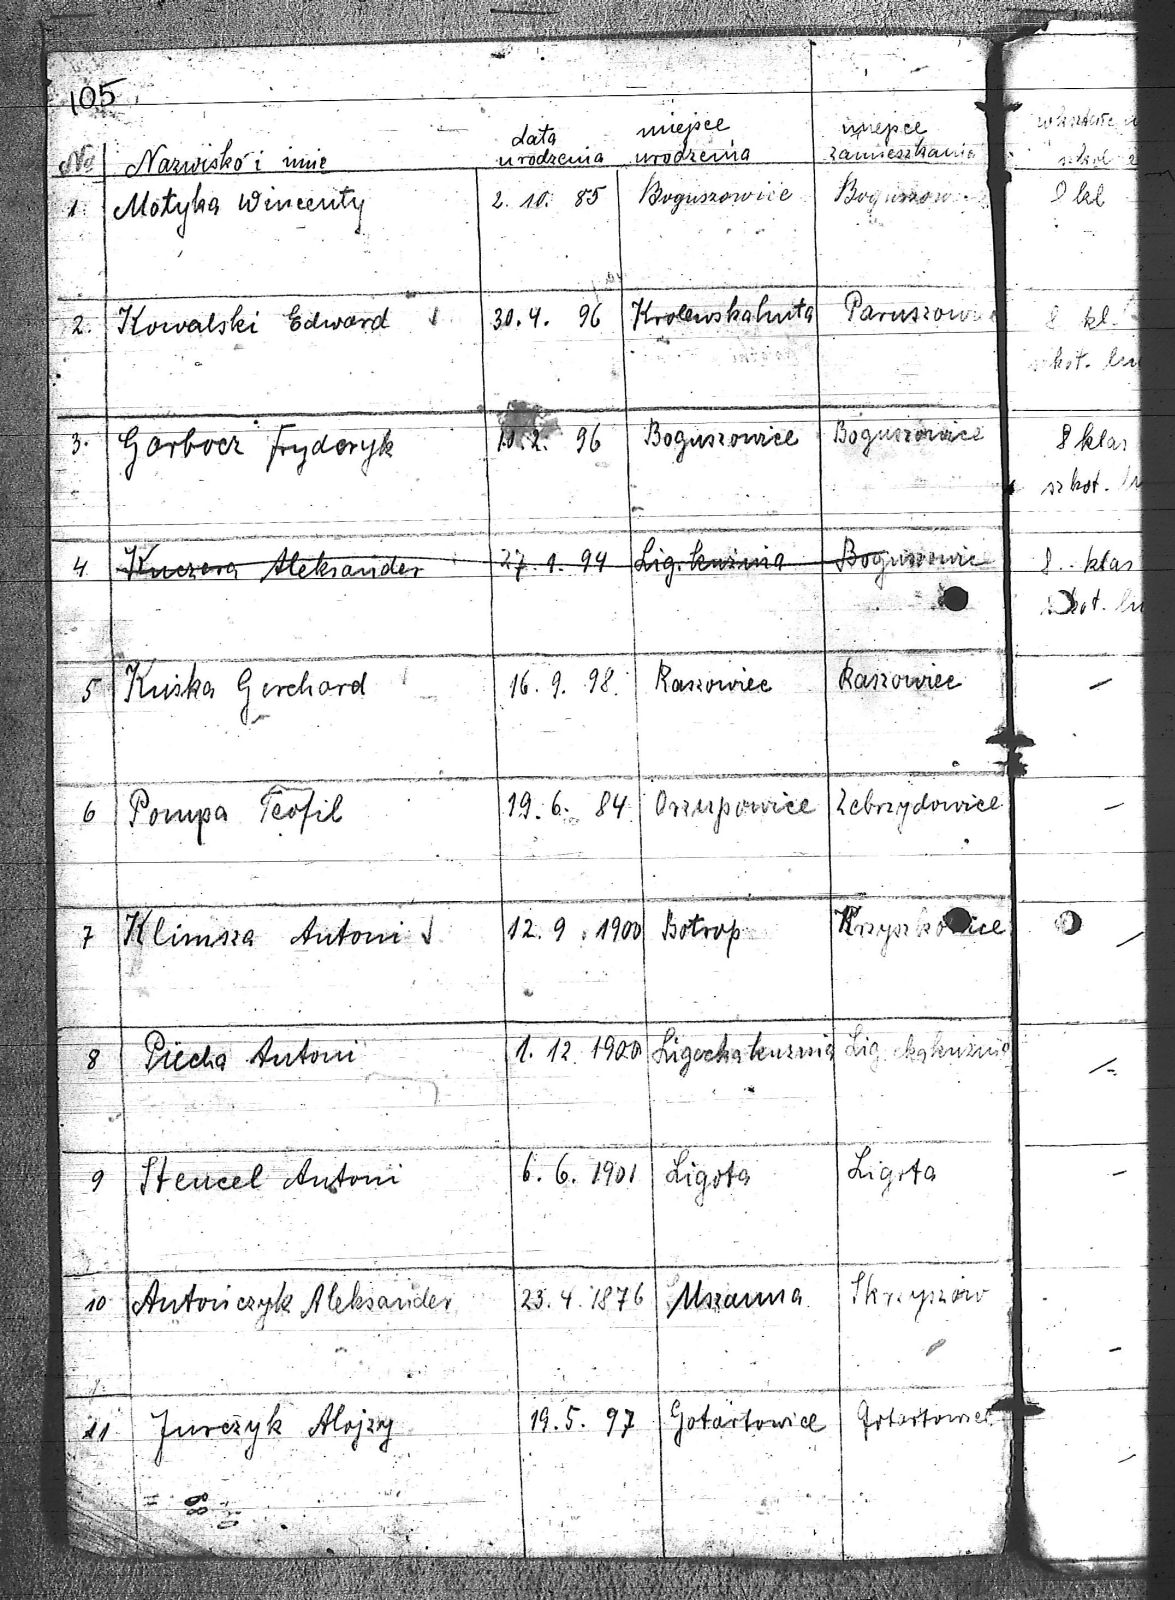 105
No Nazwisko i imię data urodzenia miejsce urodzenia miejsce zamieszkania
1. Motyka Wincenty 2. 10. 85 Boguszowice Boguszow 8 kl
2. Kowalski Edward 30. 4. 96 Krolewskahuta Paruszow 8 kl.
szkot.
3. Garbocz Fryderyk 10. 2. 96 Boguszowice Boguszowice 8 klas
szkot.
4 Kuczera Aleksander 27. 1. 94 Lig. kuźnia Boguszowic 8. klas
5 Kuśka Gerchard 16. 9. 98. Raszowiec Raszowiec –
6 Pompa Teofil 19. 6. 84 Orzupowice Zebrzydowice –
7 Klimsza Antoni 12. 9. 1900 Botrop Krzyszkowice –
8 Piecha Antoni 1. 12. 1900 Ligockakuznia Lig ckakuznia –
9 Stencel Antoni 6. 6. 1901 Ligota Ligota –
10 Antończyk Aleksander 23. 4. 1876 Mszanna Skrzyszów –
11 Jurczyk Alojzy 19. 5. 97 Gotartowice Gotartowice –